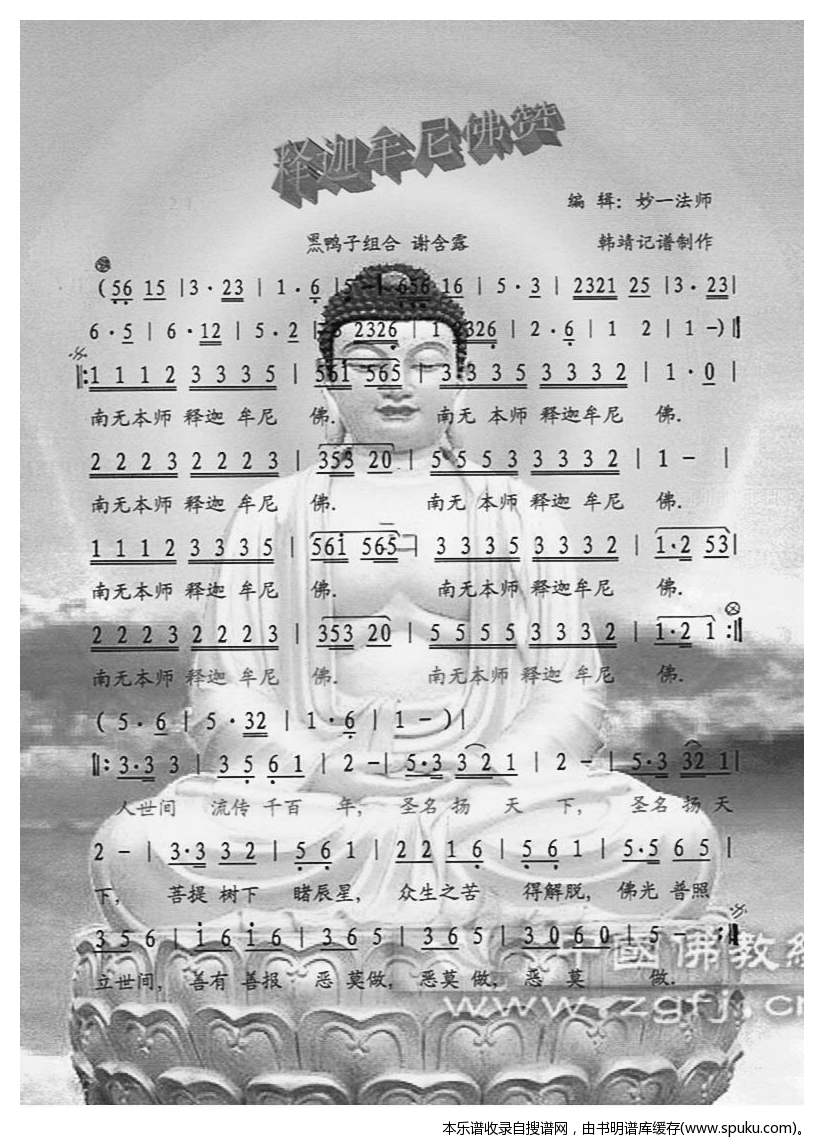 释迦牟尼佛赞
编 辑：妙一法师
黑鸭子组合 谢含露 韩靖记谱制作
(56 15 |3·23 | 1·6 |5 - 656 16 | 5·3 | 2321 25 |3·23|
6·5 | 6·12 | 5·2 |-3 2326 | 1 2326 | 2·6 | 1 2 | 1 -)‖
‖:1 1 1 2 3 3 3 5 | 561 565 | 3·3 3 5 3 3 3 2 | 1·0 |
南无本师 释迦 牟尼 佛. 南无 本师 释迦牟尼 佛.
2 2 2 3 2 2 2 3 | 353 20 | 5 5 5 3 3 3 3 2 | 1 - |
南无本师 释迦 牟尼 佛. 南无 本师 释迦 牟尼 佛.
1 1 1 2 3 3 3 5 | 561 565 3 3 3 5 3 3 3 2 | 1·2 53|
南无本师 释迦 牟尼 佛. 南无本师 释迦 牟尼 佛.
2 2 2 3 2 2 2 3 | 353 20 | 5 5 5 5 3 3 3 2 | 1·2 1 :‖
南无本师 释迦 牟尼 佛. 南无本师 释迦 牟尼 佛.
( 5·6 | 5·32 | 1·6 | 1 - )|
‖: 3·3 3 | 3 5 6 1 | 2 -| 5·3 3 2 1 | 2 - | 5·3 32 1|
人世间 流传 千百 年, 圣名 扬 天 下, 圣名 扬 天
2 - | 3·3 3 2 | 5 6 1 | 2 2 1 6 | 5 6 1 | 5·5 6 5 |
下, 菩提 树下 睹辰星, 众生之苦 得解脱, 佛光 普照
3 5 6 | i 6 i 6 | 3 6 5 | 3 6 5 | 3 0 6 0 | 5 - :‖
立世间, 善有 善报 恶 莫做, 恶莫 做, 恶 莫 做.
中國佛教
www.zgfj.cn
本乐谱收录自搜谱网，由书明谱库缓存(www.spuku.com)。